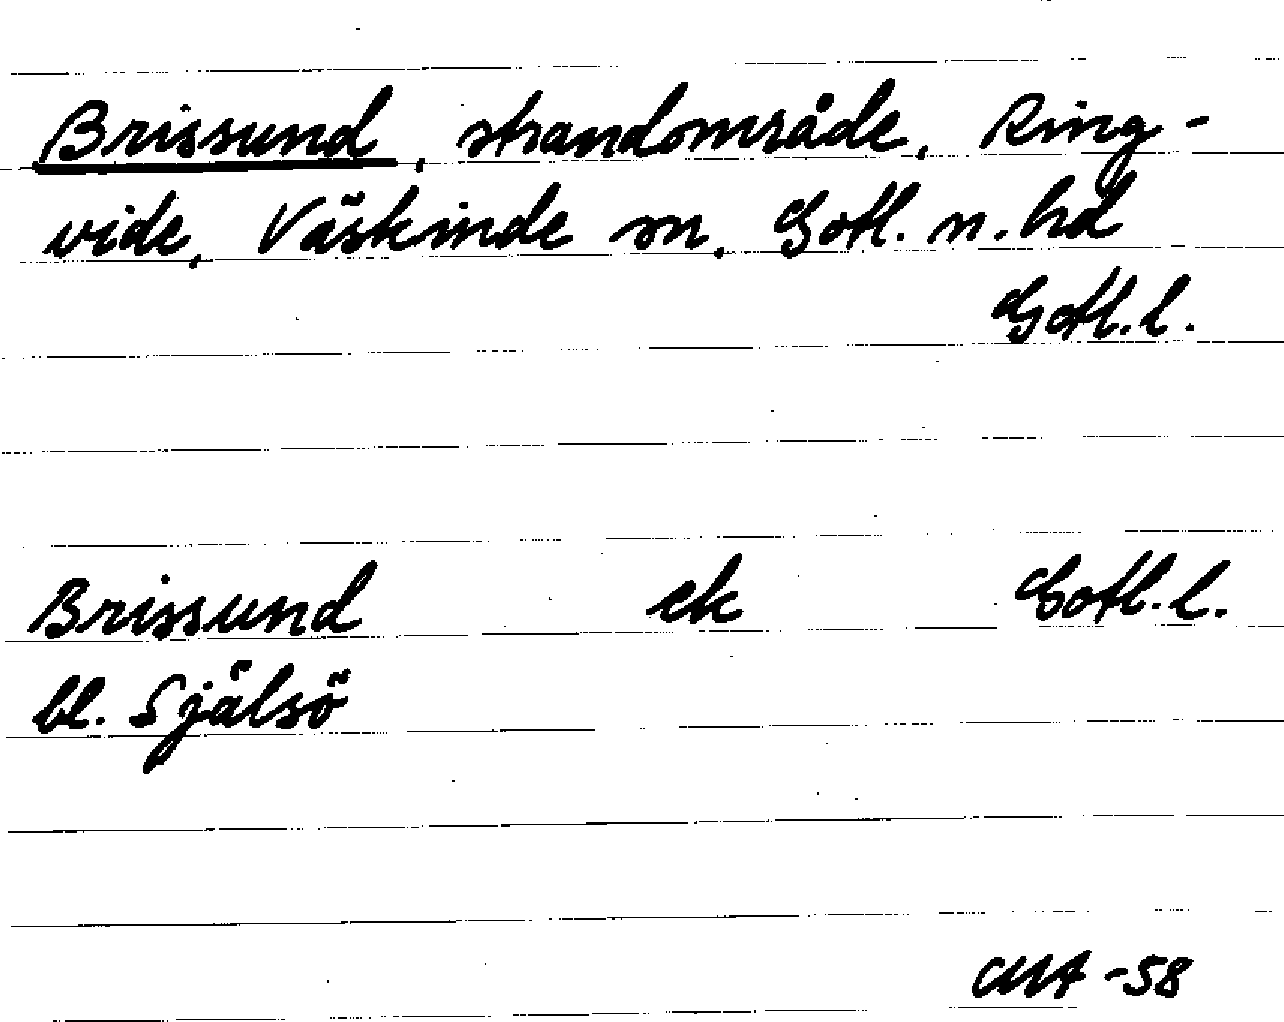 Brissund, strandområde, Ring-
vide, Väskinde sn, Gotl. n. hd
Gotl. l.
Brissund ek Gotl. l.
bl. Själsö
-58